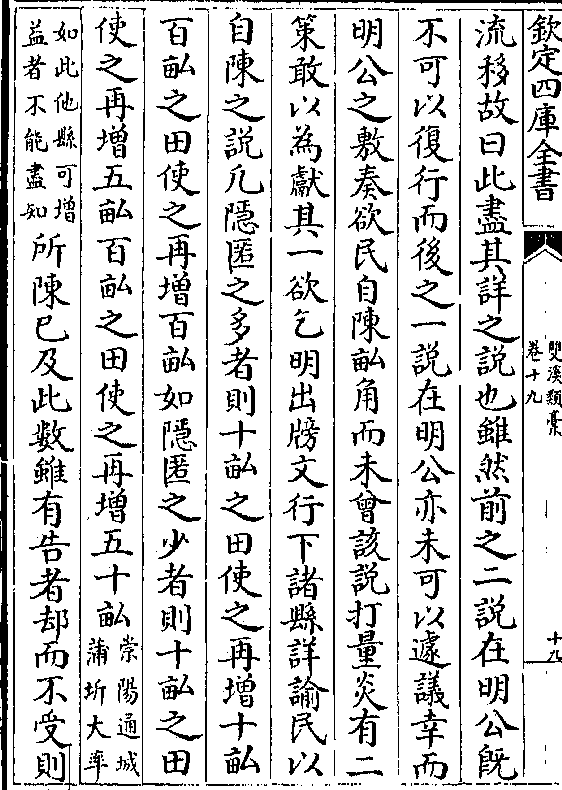 欽定四庫全書
雙溪類藁
卷十九
十九
流移故曰此盡其詳之說也雖然前之二說在明公既
不可以復行而後之一說在明公亦未可以遽議幸而
明公之敷奏欲民自陳畝角而未曾該說打量炎有二
策敢以為獻其一欲乞明出牓文行下諸縣詳諭民以
自陳之說凡隱匿之多者則十畝之田使之再增十畝
百畝之田使之再增百畝如隱匿之少者則十畝之田
使之再增五畝百畝之田使之再增五十畝崇陽通城
蒲圻大率
如此他縣可增
益者不能盡知
所陳已及此數雖有告者却而不受則